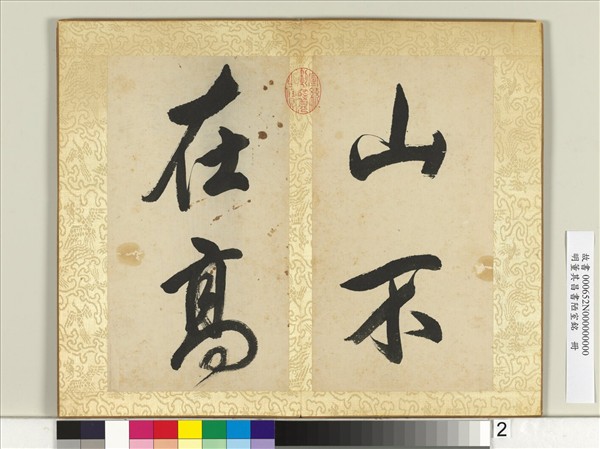 山不
在高
故書 000652N000000000
明董其昌書陋室銘 冊
2